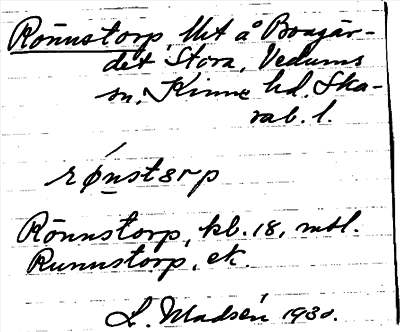 Rönnstorp, lht å Bragär-
det Stora, Vedums
sn, Kinne hd, Ska-
rab. l.
rǿnstɘrp
Rönnstorp, kb. 18, mtl.
Runnstorp, ek.
L. Madsén 1930.